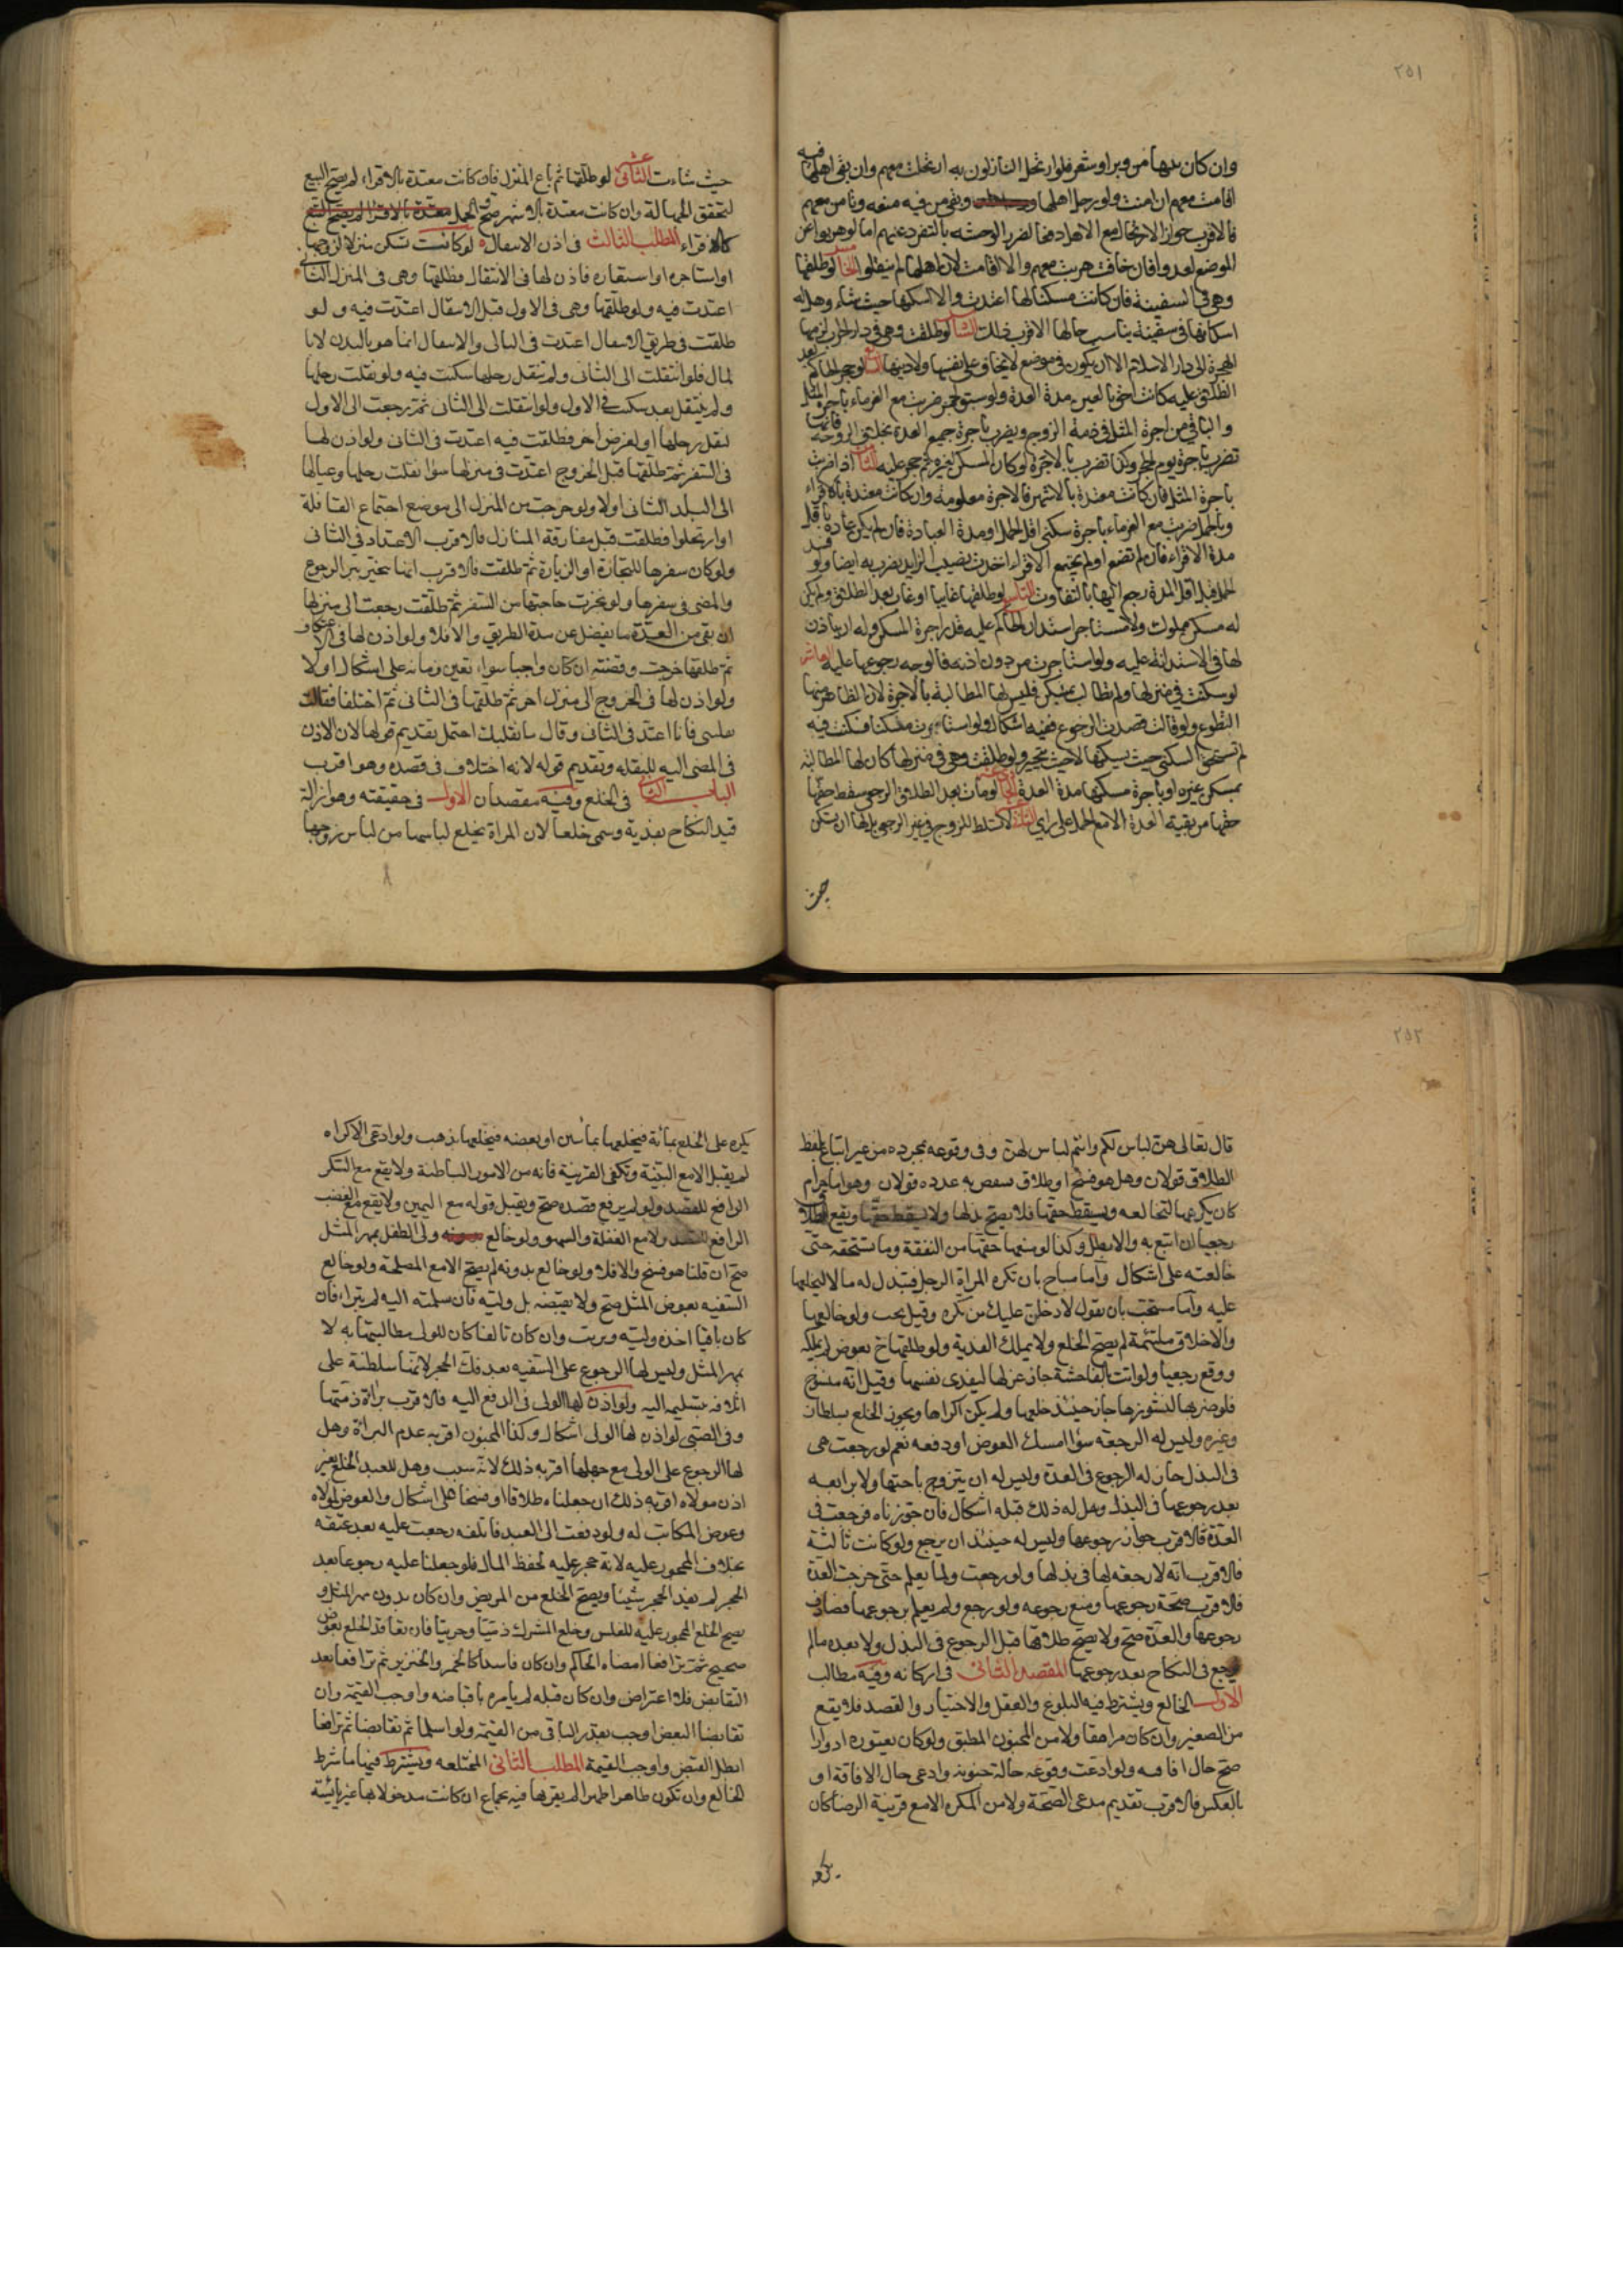 ٢٥١
وان كان بيتها من وبر او شعر فلو ارتحل النازلون به ارتحلت معهم وان بقى اهلها فيه
اقامت معهم ان امنت ولو رحل اهلها وبقى من فيه منعه وتأمن معهم
فالاقرب جواز الارتحال مع الاهل دفعا لضرر الوحشه بالتفرد عنهم اما لو هربوا عن
الموضع لعدو فان خافت هربت معهم والا اقامت لان اهلها لم ينتقلوا الخامس لو طلقها
وهى فى السفينة فان كانت مسكنا لها اعتدت والا اسكنها حيث شاء وهل له
اسكانها فى سفينة يناسب حالها الاقرب ذلك السادس لو طلقت وهى فى دار الحرب لزمها
الهجرة الى دار الاسلام الا ان يكون فى موضع لا تخاف على نفسها ولا دينها السابع لو حجر الحاكم بعد
الطلاق عليه كانت احق بالعين مدة العدة ولو سبق الحجر ضربت مع الغرماء باجرة المثل
والباقى من اجرة المثل فى ذمة الزوج ويضرب باجرة جميع العدة بخلاف الزوجة فانها
تضرب باجرة يوم الحجر وكذا تضرب بالاجرة لو كان المسكن لغيره ثم حجر عليه الثامن اذا ضربت
باجرة المثل فان كانت معتدة بالاشهر فالاجرة معلومة وان كانت معتدة بالاقراء
وبالحمل ضربت مع الغرماء باجرة سكنى اقل الحمل او مدة العادة فان لم يكن عادة باقل
مدة الاقراء فان لم تضع او لم يجتمع الاقراء اخذت نصيب الزايد يضرب به ايضا ولو فسد
الحمل قبل اقل المدة رجع اليها بالتفاوت التاسع لو طلقها غايبا او غاب بعد الطلاق ولم يكن
له مسكن مملوك ولا مستاجر استدان الحاكم عليه قدر اجرة المسكن وله ان ياذن
لها فى الاستدانة عليه ولو استاجرت من دون اذنه فالوجه رجوعها عليه العاشر
لو سكنت فى منزلها ولم تطالب بمسكن فليس لها المطالبة بالاجرة لان الظاهر منها
التطوع ولو قالت قصدت الرجوع ففيه اشكال ولو استاجرت مسكنا فسكنت فيه
لم تستحق السكنى حيث يسكنها لا حيث تتخير ولو طلقت وهى فى منزلها كان لها المطالبة
بمسكن غيره او باجرة مسكنها مدة العدة الحادى عشر لو مات بعد الطلاق الرجعى سقط حقها
حقها من بقية العدة الا مع الحمل على راى الثانى عشر لا تسلط للزوج فى غير الرجعى بل لها ان تسكن
حيث
حيث شاءت الثانى عشر لو طلقها ثم باع المنزل فان كانت معتدة بالاقراء لم يصح البيع
لتحقق الجهالة وان كانت معتدة بالاشهر صح والحمل معتدة بالاقراء لم يصح البيع
كالاقراء المطلب الثالث فى اذن الانتقال لو كانت تسكن منزلا لزوجها
او استاجره او استعاره فاذن لها فى الانتقال فطلقها وهى فى المنزل الثانى
اعتدت فيه ولو طلقها وهى فى الاول قبل الانتقال اعتدت فيه ولو
طلقت فى طريق الانتقال اعتدت فى الثانى والانتقال انما هو بالبدن لا با
لمال فلو انتقلت الى الثانى ولم تنقل رحلها سكنت فيه ولو نقلت رحلها
ولم ينتقل بعد سكنت فى الاول ولو انتقلت الى الثانى ثم رجعت الى الاول
لنقل رحلها او لغرض آخر فطلقت فيه اعتدت فى الثانى ولو اذن لها
فى السفر ثم طلقها قبل الخروج اعتدت فى منزلها سواء نقلت رحلها وعيالها
الى البلد الثانى اولا ولو خرجت من المنزل الى موضع اجتماع القافلة
او ارتحلوا فطلقت قبل مفارقة المنازل فالاقرب الاعتداد فى الثانى
ولو كان سفرها للتجارة او الزيارة ثم طلقت فالاقرب انها تتخير بين الرجوع
والمضى فى سفرها ولو نجزت حاجتها من السفر ثم طلقت رجعت الى منزلها
ان بقى من العدة ما يفضل عن مدة الطريق والا فلا ولو اذن لها فى الاعتكاف
ثم طلقها خرجت وقضته ان كان واجبا سواء تعين زمانه على اشكال او لا
ولو اذن لها فى الخروج الى منزل آخر ثم طلقها فى الثانى ثم اختلفا فقالت
نقلتنى فانا اعتد فى الثانى وقال ما نقلتك احتمل تقديم قولها لان الاذن
فى المضى اليه للنقلة وتقديم قوله لانه اختلاف فى قصده وهو اقرب
الباب الثانى فى الخلع وفيه مقصدان الاول فى حقيقته وهو ازالة
قيد النكاح بفدية وسمى خلعا لان المراة تخلع لباسها من لباس زوجها
٢٥٢
قال تعالى هن لباس لكم وانتم لباس لهن وفى وقوعه بمجرده من غير اتباع بلفظ
الطلاق قولان وهل هو فسخ او طلاق ينقص به عدده قولان وهو اما حرام
كان يكرهها لتخالعه ويسقط حقها فلا يصح بذلها ولا يسقط حقها ويقع الطلاق
رجعيا ان اتبع به والا بطل وكذا لو منعها حقها من النفقة وما تستحقه حتى
خالعته على اشكال واما مباح بان تكره المراة الرجل فتبذل له مالا ليخلعها
عليه واما مستحب بان يقول لادخلن عليك من تكره وقيل يجب ولو خالعها
والاخلاق ملتئمة لم يصح الخلع ولا يملك الفدية ولو طلقها ح بعوض لم يملكه
ووقع رجعيا ولو اتت بالفاحشة جاز عزلها لتفدى نفسها وقيل انه منسوخ
فلو ضربها لنشوزها جاز حينئذ خلعها ولم يكن اكراها ويجوز الخلع بسلطان
وغيره وليس له الرجعه سواء امسك العوض او دفعه نعم لو رجعت هى
فى البذل جاز له الرجوع فى العدة وليس له ان يتزوج باختها ولا برابعه
بعد رجوعها فى البذل وهل له ذلك قبله اشكال فان جوزناه فرجعت فى
العدة فالاقرب جواز رجوعها وليس له حينئذ ان يرجع ولو كانت ثالثة
فالاقرب انه لا رجعة لها فى بذلها ولو رجعت ولما يعلم حتى خرجت العدة
فالاقرب صحة رجوعها ومنع رجوعه ولو رجع ولم يعلم برجوعها فصادف
رجوعها والعدة صح ولا يصح طلاقها قبل الرجوع فى البذل ولا بعده ما لم
يرجع فى النكاح بعد رجوعها المقصد الثانى فى اركانه وفيه مطالب
الاول الخالع ويشترط فيه البلوغ والعقل والاختيار والقصد فلا يقع
من الصغير وان كان مراهقا ولا من المجنون المطبق ولو كان يعتوره ادوارا
صح حال افاقته ولو ادعت وقوعه حالة جنونه وادعى حال الافاقة او
بالعكس فالاقرب تقديم مدعى الصحة ولا من المكره الا مع قرينة الرضا كان
يكره
يكره على الخلع بمائة فيخلعها بمأتين او بفضه فيخلعها بذهب ولو ادعى الاكراه
لم يقبل الا مع البينة وتكفى القرينة فانه من الامور الباطنة ولا يقع مع السكر
الرافع للقصد ولو لم يرفع قصده صح ويقبل قوله مع اليمين ولا يقع مع الغضب
الرافع للقصد ولا مع الغفلة والسهو ولو خالع ولى الطفل بمهر المثل
صح ان قلنا هو فسخ والا فلا ولو خالع بدونه لم يصح الا مع المصلحة ولو خالع
السفيه بعوض المثل صح ولا يقبضه بل وليه فان سلمته اليه لم تبراء فان
كان باقيا اخذه وليه وبريت وان كان تالفا كان للولى مطالبتها به لا
بمهر المثل وليس لها الرجوع على السفيه بعد فك الحجر لانها سلطته على
اتلافه بتسليمه اليه ولو اذن لها الولى فى الدفع اليه فالاقرب براءة ذمتها
وفى الصبى لو اذن لها الولى اشكال وكذا المجنون اقربه عدم البراءة وهل
لها الرجوع على الولى مع جهلها اقربه ذلك لانه سبب وهل للعبد الخلع بغير
اذن مولاه اقربه ذلك ان جعلناه طلاقا او فسخا على اشكال والعوض لمولاه
وعوض المكاتب له ولو دفعت الى العبد فاتلفه رجعت عليه بعد عتقه
بخلاف المحجور عليه لانه حجر عليه لحفظ المال فلو جعلنا عليه رجوعا بعد
الحجر لم يفد الحجر شيئا ويصح الخلع من المريض وان كان بدون مهر المثل و
يصح الخلع المحجور عليه للفلس وخلع المشرك ذميا وحربيا فان تعاقدا الخلع بعوض
صحيح ثم ترافعا امضاه الحاكم وان كان فاسدا كالخمر والخنزير ثم ترافعا بعد
التقابض فلا اعتراض وان كان قبله لم يامره باقباضه واوجب القيمة وان
تقابضا البعض اوجب بقدر الباقى من القيمة ولو اسلما ثم تقابضا ثم ترافعا
ابطل القبض واوجب القيمة المطلب الثانى المختلعه ويشترط فيها ما شرط
الخالع وان تكون طاهرا طهرا لم يقربها فيه بجماع ان كانت مدخولا بها غير يائسة